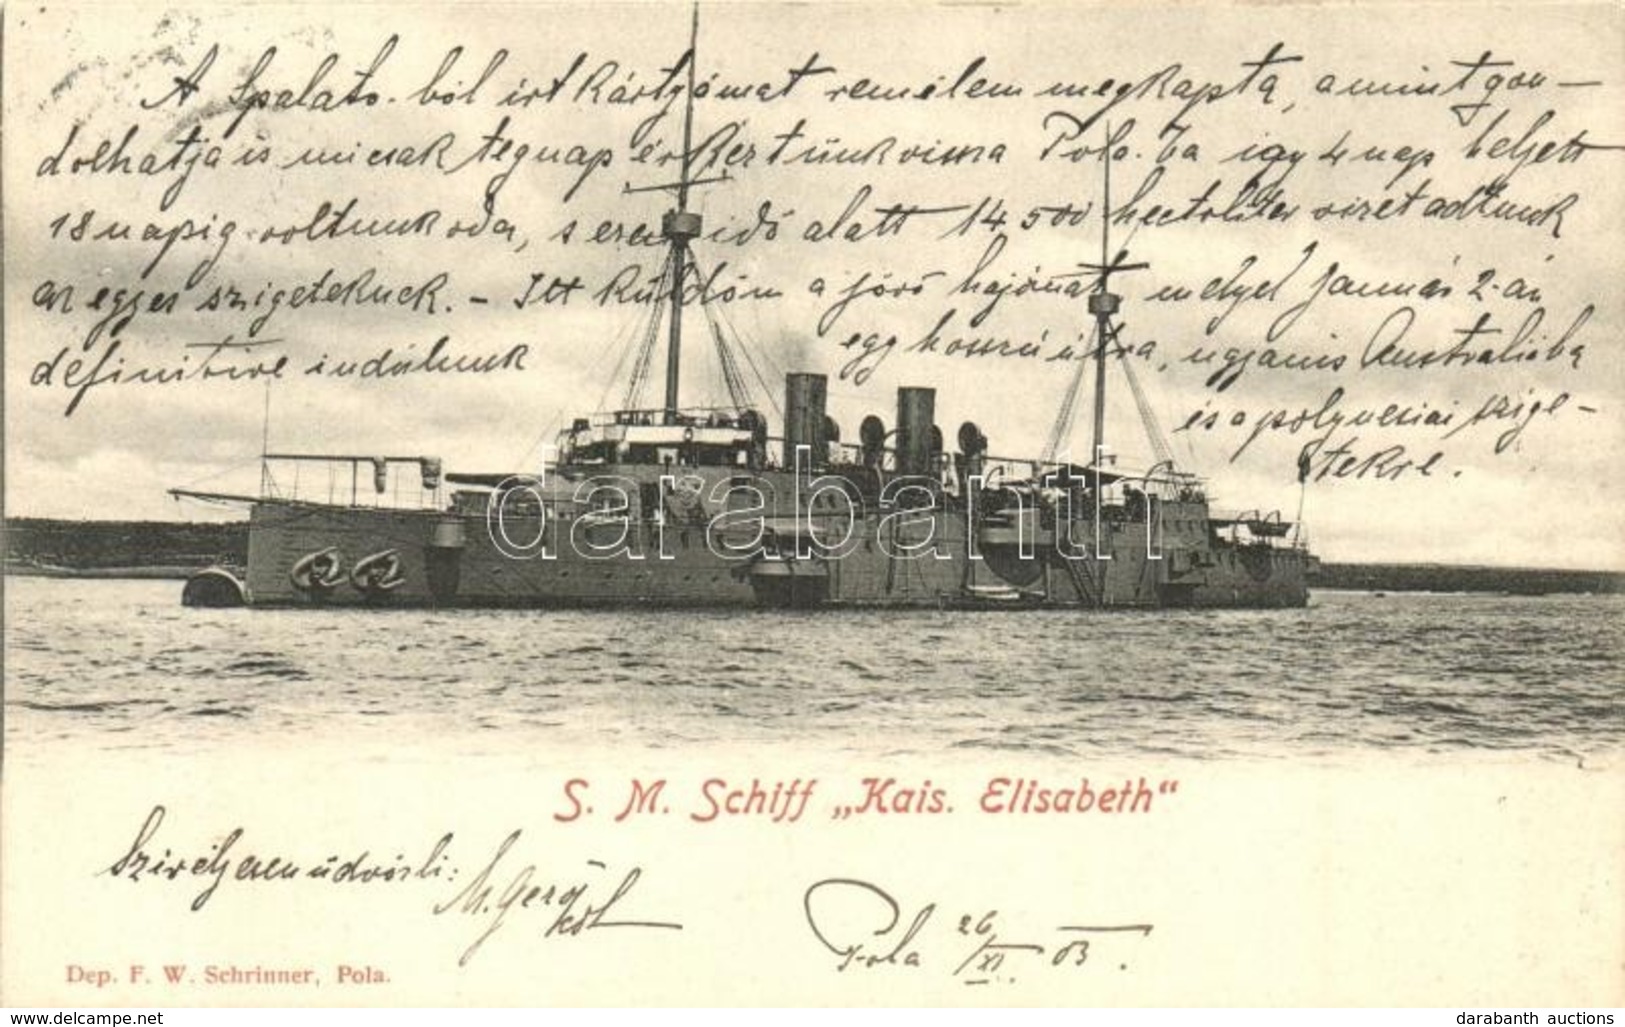 A Spalato-ból írt kártyámat remélem megkapta, amint gon-
dolhatja is mi csak tegnap érkeztünk vissza Pola-ba így 4 nap helyett
18 napig voltunk oda, s ezen idő alatt 14,500 hectoliter vizet adtunk
az egyes szigeteknek. - Itt küldöm a jövő hajómat, melyel Január 2-án
definitive indulunk egy hosszú útra, ugyanis Australiába
és a polynesiai szige-
tekre.
darabanth
S. M. Schiff „Kais. Elisabeth“
Szívélyesen üdvözli:
M. Gerő
Pola 26/XI. 03.
Dep. F. W. Schrinner, Pola.
www.delcampe.net
darabanth auctions